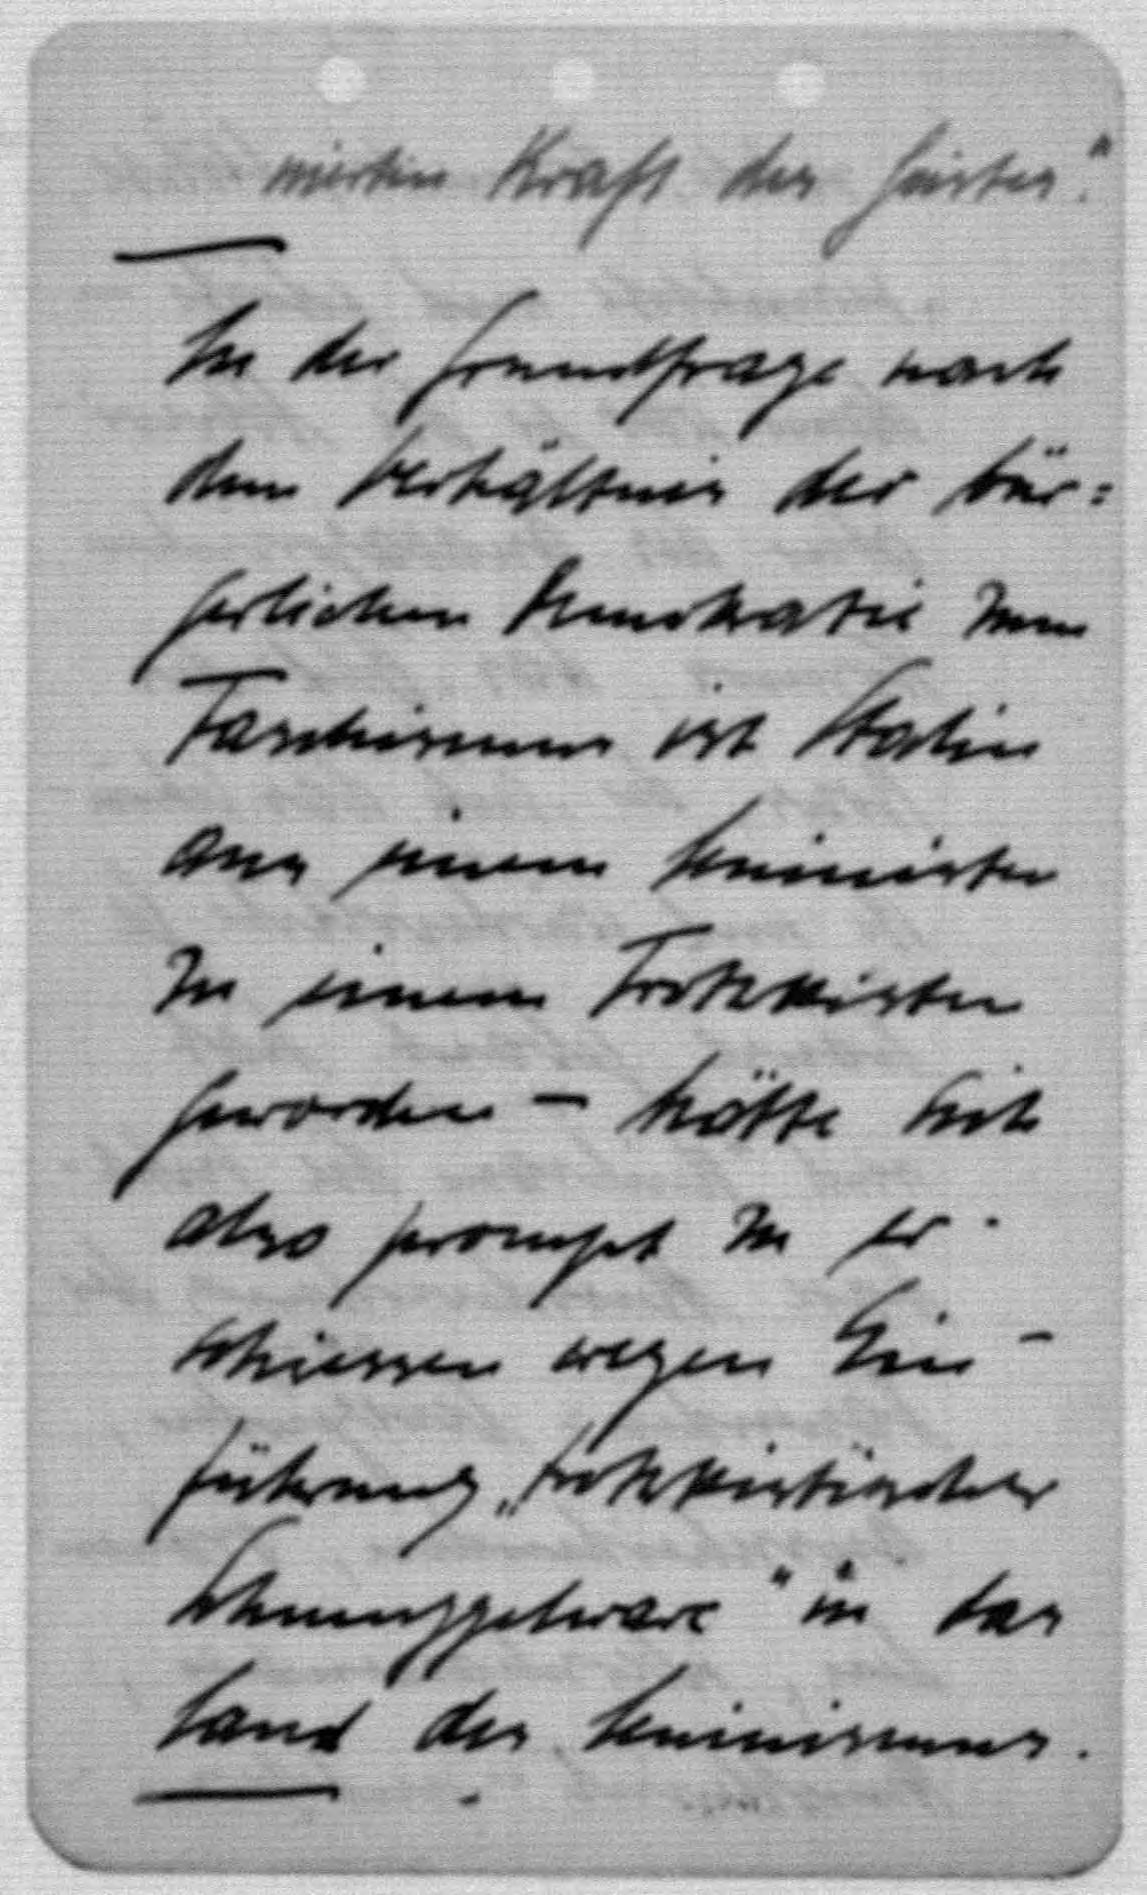 mierten Kraft des Geistes."
In der Grundfrage nach
dem Verhältnis der bür=
gerlichen Demokratie zum
Faschismus ist Stalin
aus einem Leninisten
zu einem Trotzkisten
geworden - hätte sich
also prompt zu er-
schiessen wegen Ein-
führung „trotzkistischer
Schmuggelware" in das
Land des Leninismus.